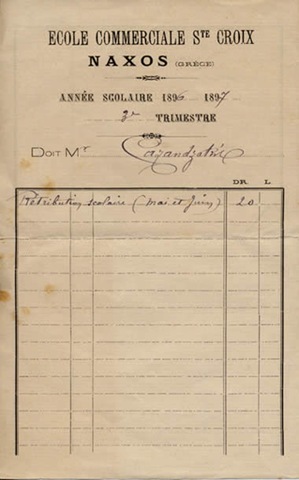 ECOLE COMMERCIALE STE CROIX
NAXOS (GRÈCE)
ANNÉE SCOLAIRE 1896 1897
TRIMESTRE
DOIT Mr Cazandzakis
DR. L.
Rétribution scolaire (mai et juin) 20